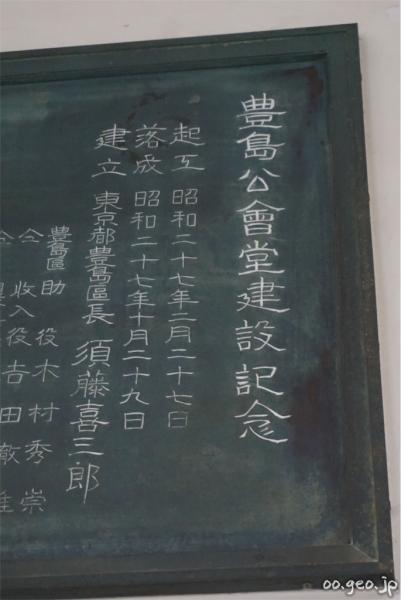 豊島公會堂建設記念
起工 昭和二十七年二月二十七日
落成 昭和二十七年十月二十九日
建立 東京都豊島區長 須藤喜三郎
豊島區助役木村秀崇
仝 收入役吉田敏雄
oo.geo.jp